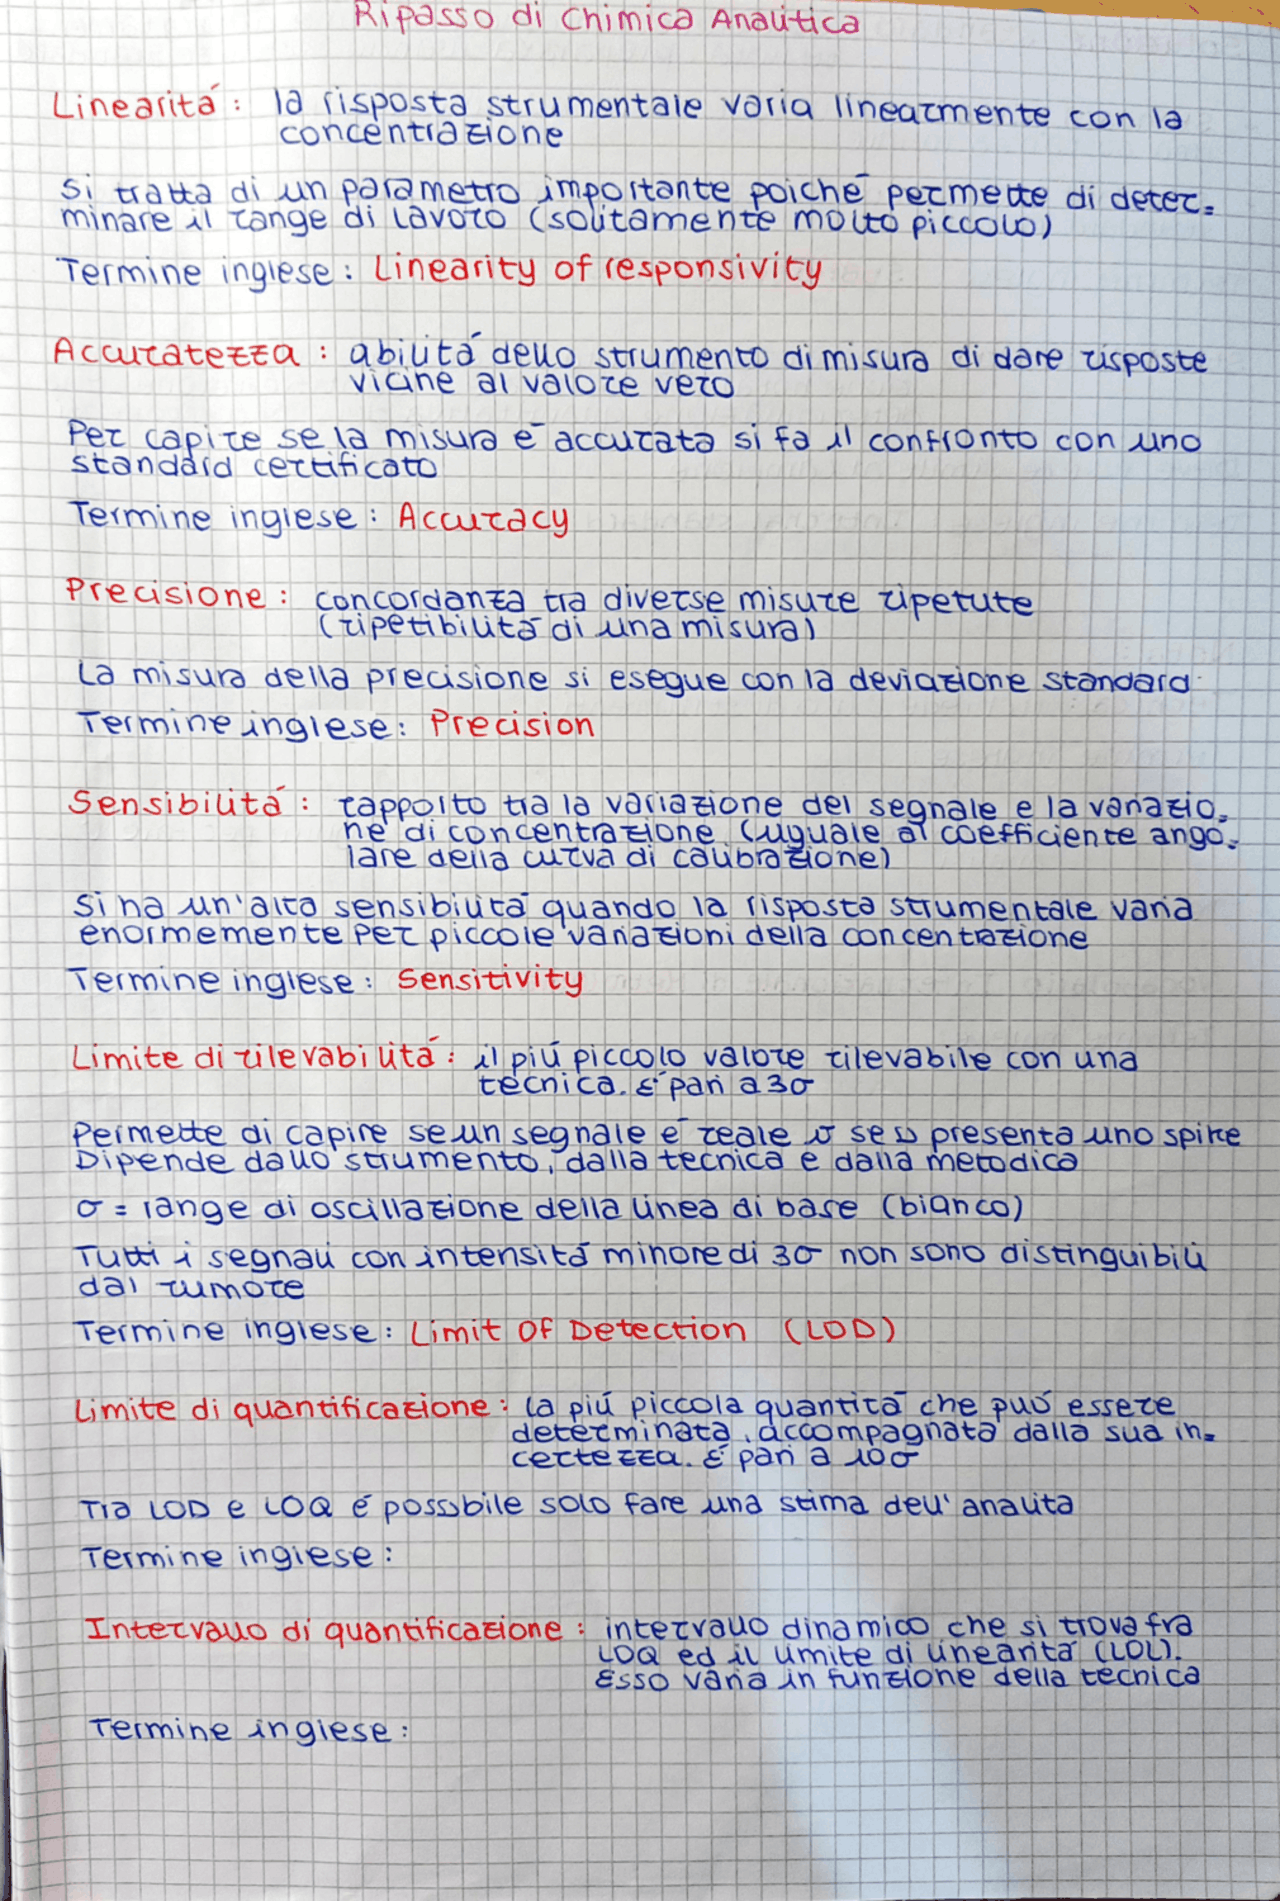 Ripasso di Chimica Analitica
Linearitá: la risposta strumentale varia linearmente con la
concentrazione
Si tratta di un parametro importante poiché permette di deter=
minare il range di lavoro (solitamente molto piccolo)
Termine inglese: Linearity of responsivity
Accuratezza: abilitá dello strumento di misura di dare risposte
vicine al valore vero
Per capire se la misura é accurata si fa il confronto con uno
standard certificato
Termine inglese: Accuracy
Precisione: concordanza tra diverse misure ripetute
(ripetibilitá di una misura)
La misura della precisione si esegue con la deviazione standard
Termine inglese: Precision
Sensibilitá: rapporto tra la variazione del segnale e la variazio=
ne di concentrazione (uguale al coefficiente ango=
lare della curva di calibrazione)
Si ha un'alta sensibilitá quando la risposta strumentale varia
enormemente per piccole variazioni della concentrazione
Termine inglese: Sensitivity
Limite di rilevabilitá: il piú piccolo valore rilevabile con una
tecnica. É pari a 3σ
Permette di capire se un segnale é reale o se si presenta uno spike
Dipende dallo strumento, dalla tecnica e dalla metodica
σ = range di oscillazione della linea di base (bianco)
Tutti i segnali con intensitá minore di 3σ non sono distinguibili
dal rumore
Termine inglese: Limit Of Detection (LOD)
Limite di quantificazione: la piú piccola quantitá che puó essere
determinata, accompagnata dalla sua in=
certezza. É pari a 10σ
Tra LOD e LOQ é possibile solo fare una stima dell'analita
Termine inglese:
Intervallo di quantificazione: intervallo dinamico che si trova fra
LOQ ed il limite di linearitá (LOL).
Esso varia in funzione della tecnica
Termine inglese: